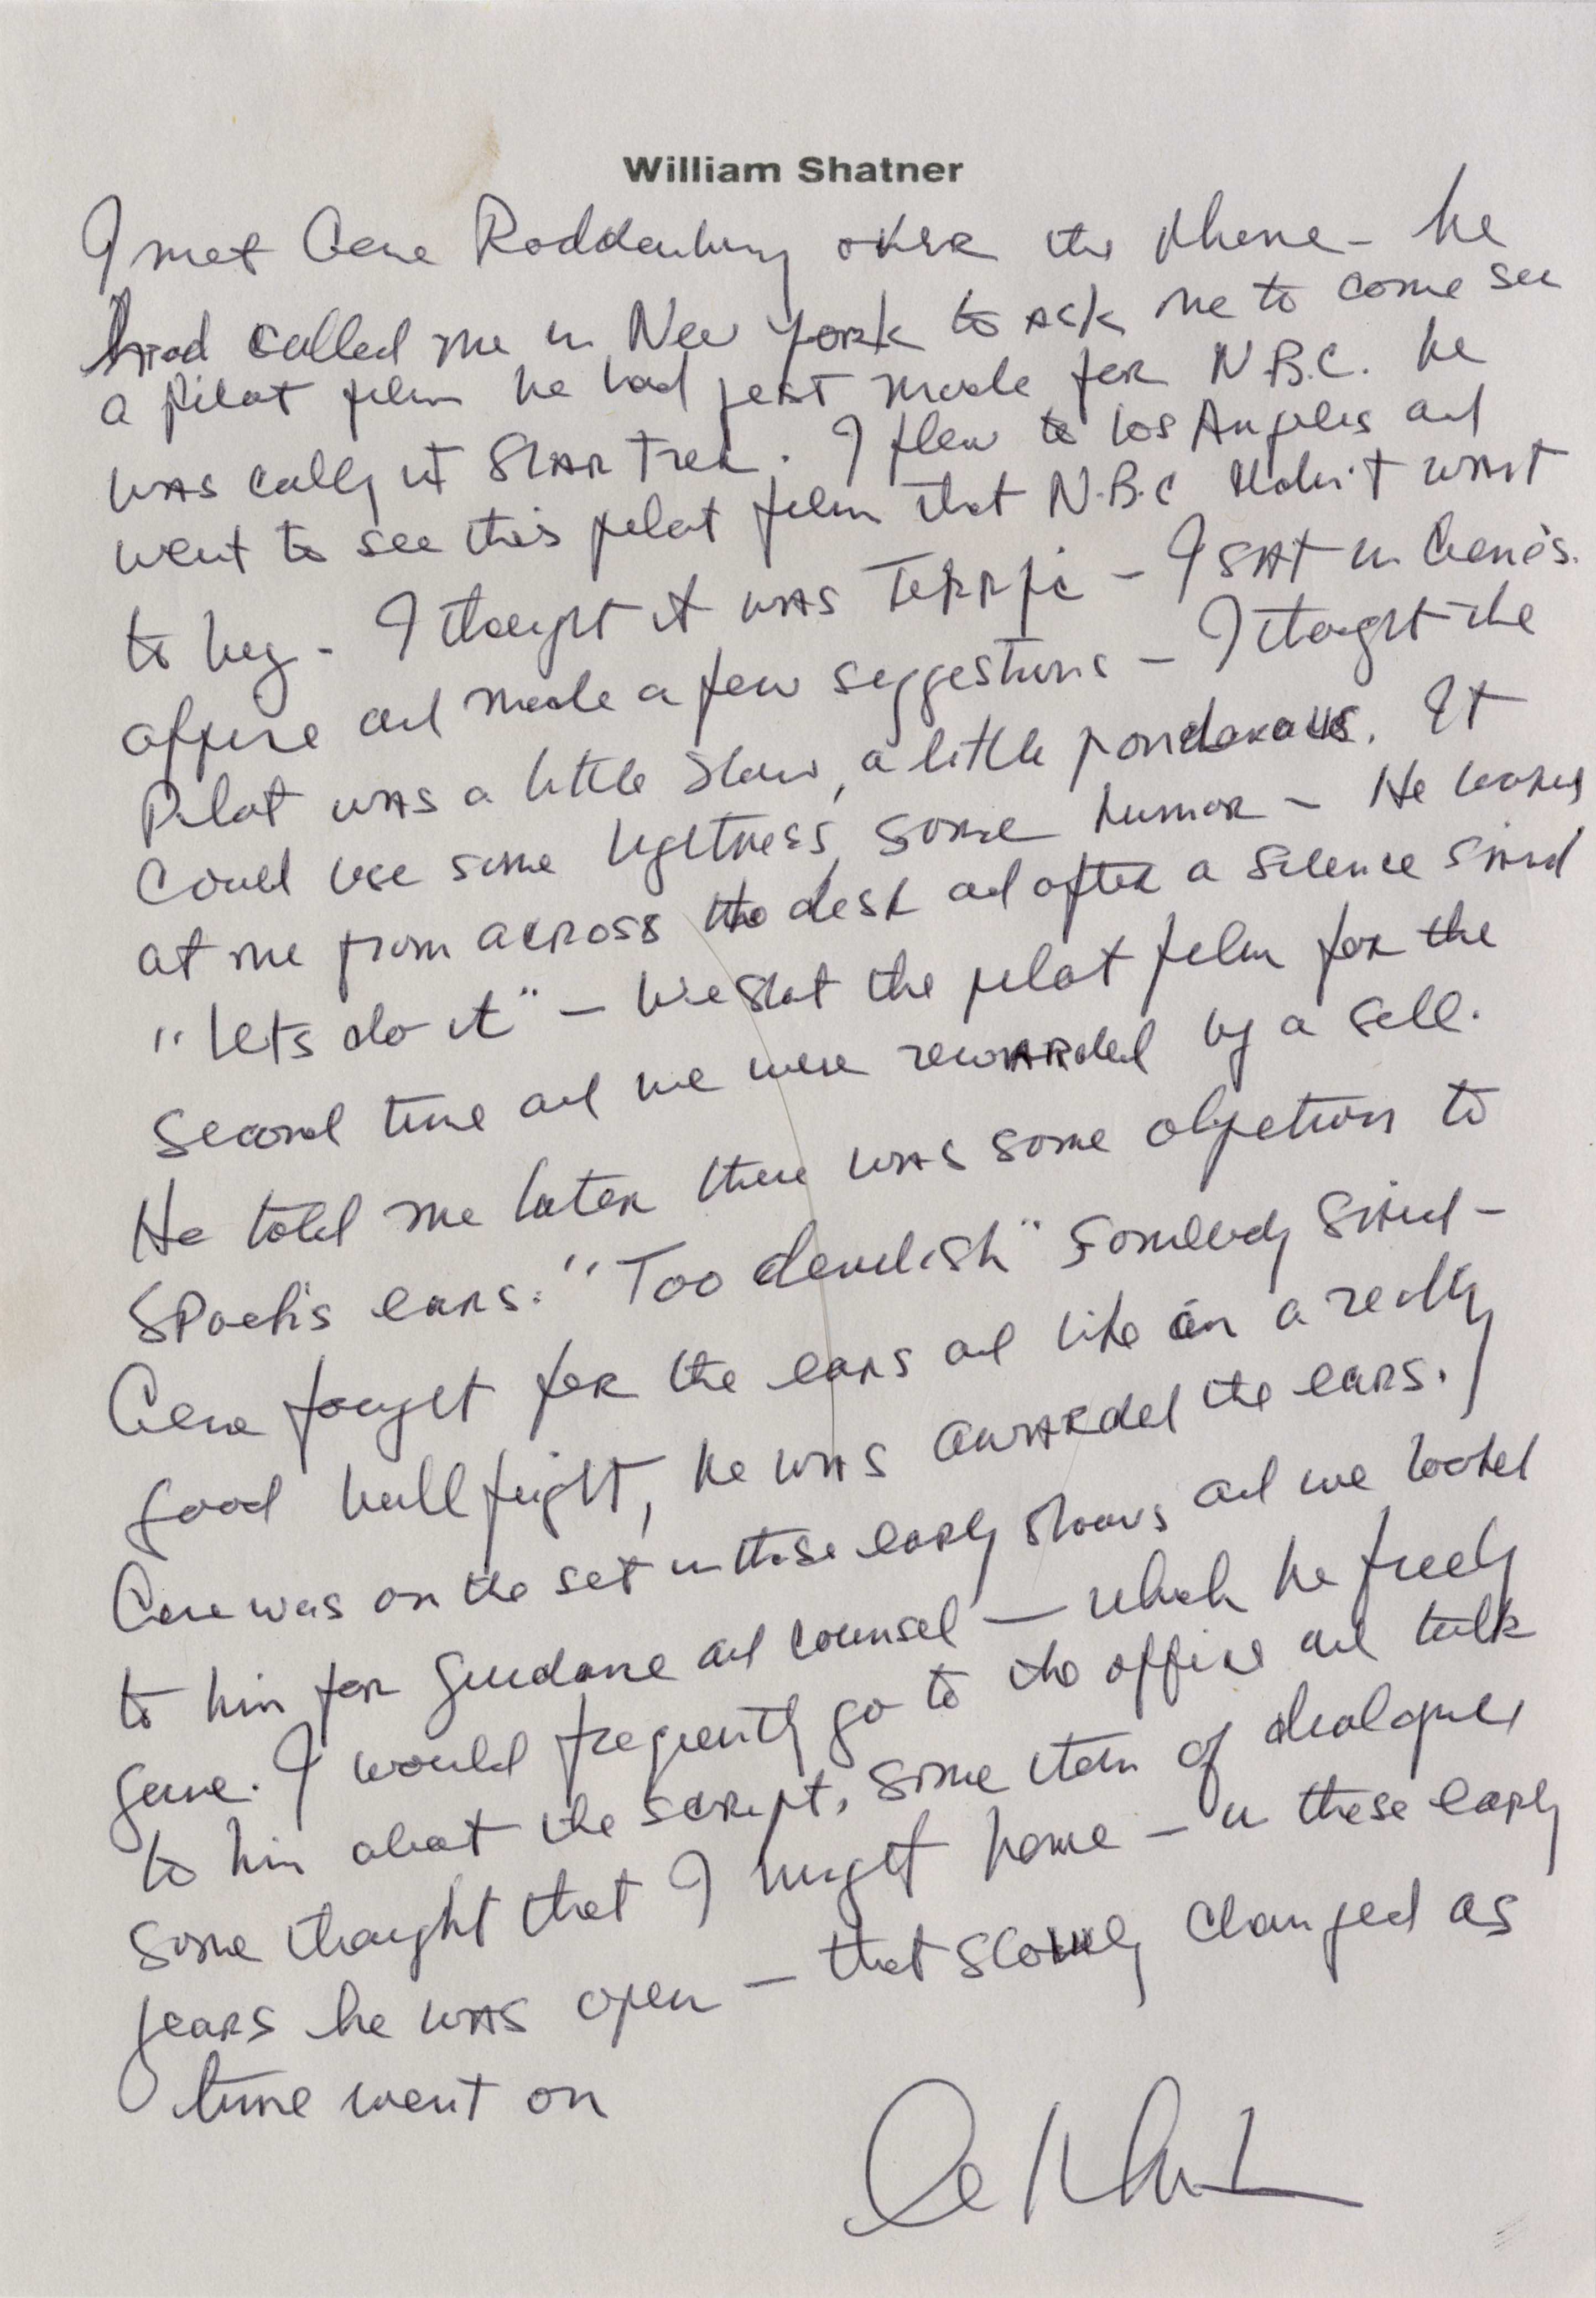 William Shatner
I met Gene Roddenberry over the phone - he
had called me in New York to ask me to come see
a pilot film he had just made for N.B.C. he
was calling it Star Trek. I flew to Los Angeles and
went to see this pilot film that N.B.C didn't want
to buy - I thought it was Terrific - I sat in Gene's
office and made a few suggestions - I thought the
Pilot was a little slow, a little ponderous. It
could use some lightness, some humor - He looked
at me from across the desk and after a silence said
"Let's do it" - We shot the pilot film for the
second time and we were rewarded by a sell.
He told me later there was some objection to
Spock's ears. "Too devilish" somebody said -
Gene fought for the ears and like in a really
good bull fight, he was awarded the ears.
Gene was on the set in those early shows and we looked
to him for guidance and counsel - which he freely
gave. I would frequently go to the office and talk
to him about the script, some item of dialogue,
some thought that I might have - in these early
years he was open - that slowly changed as
time went on